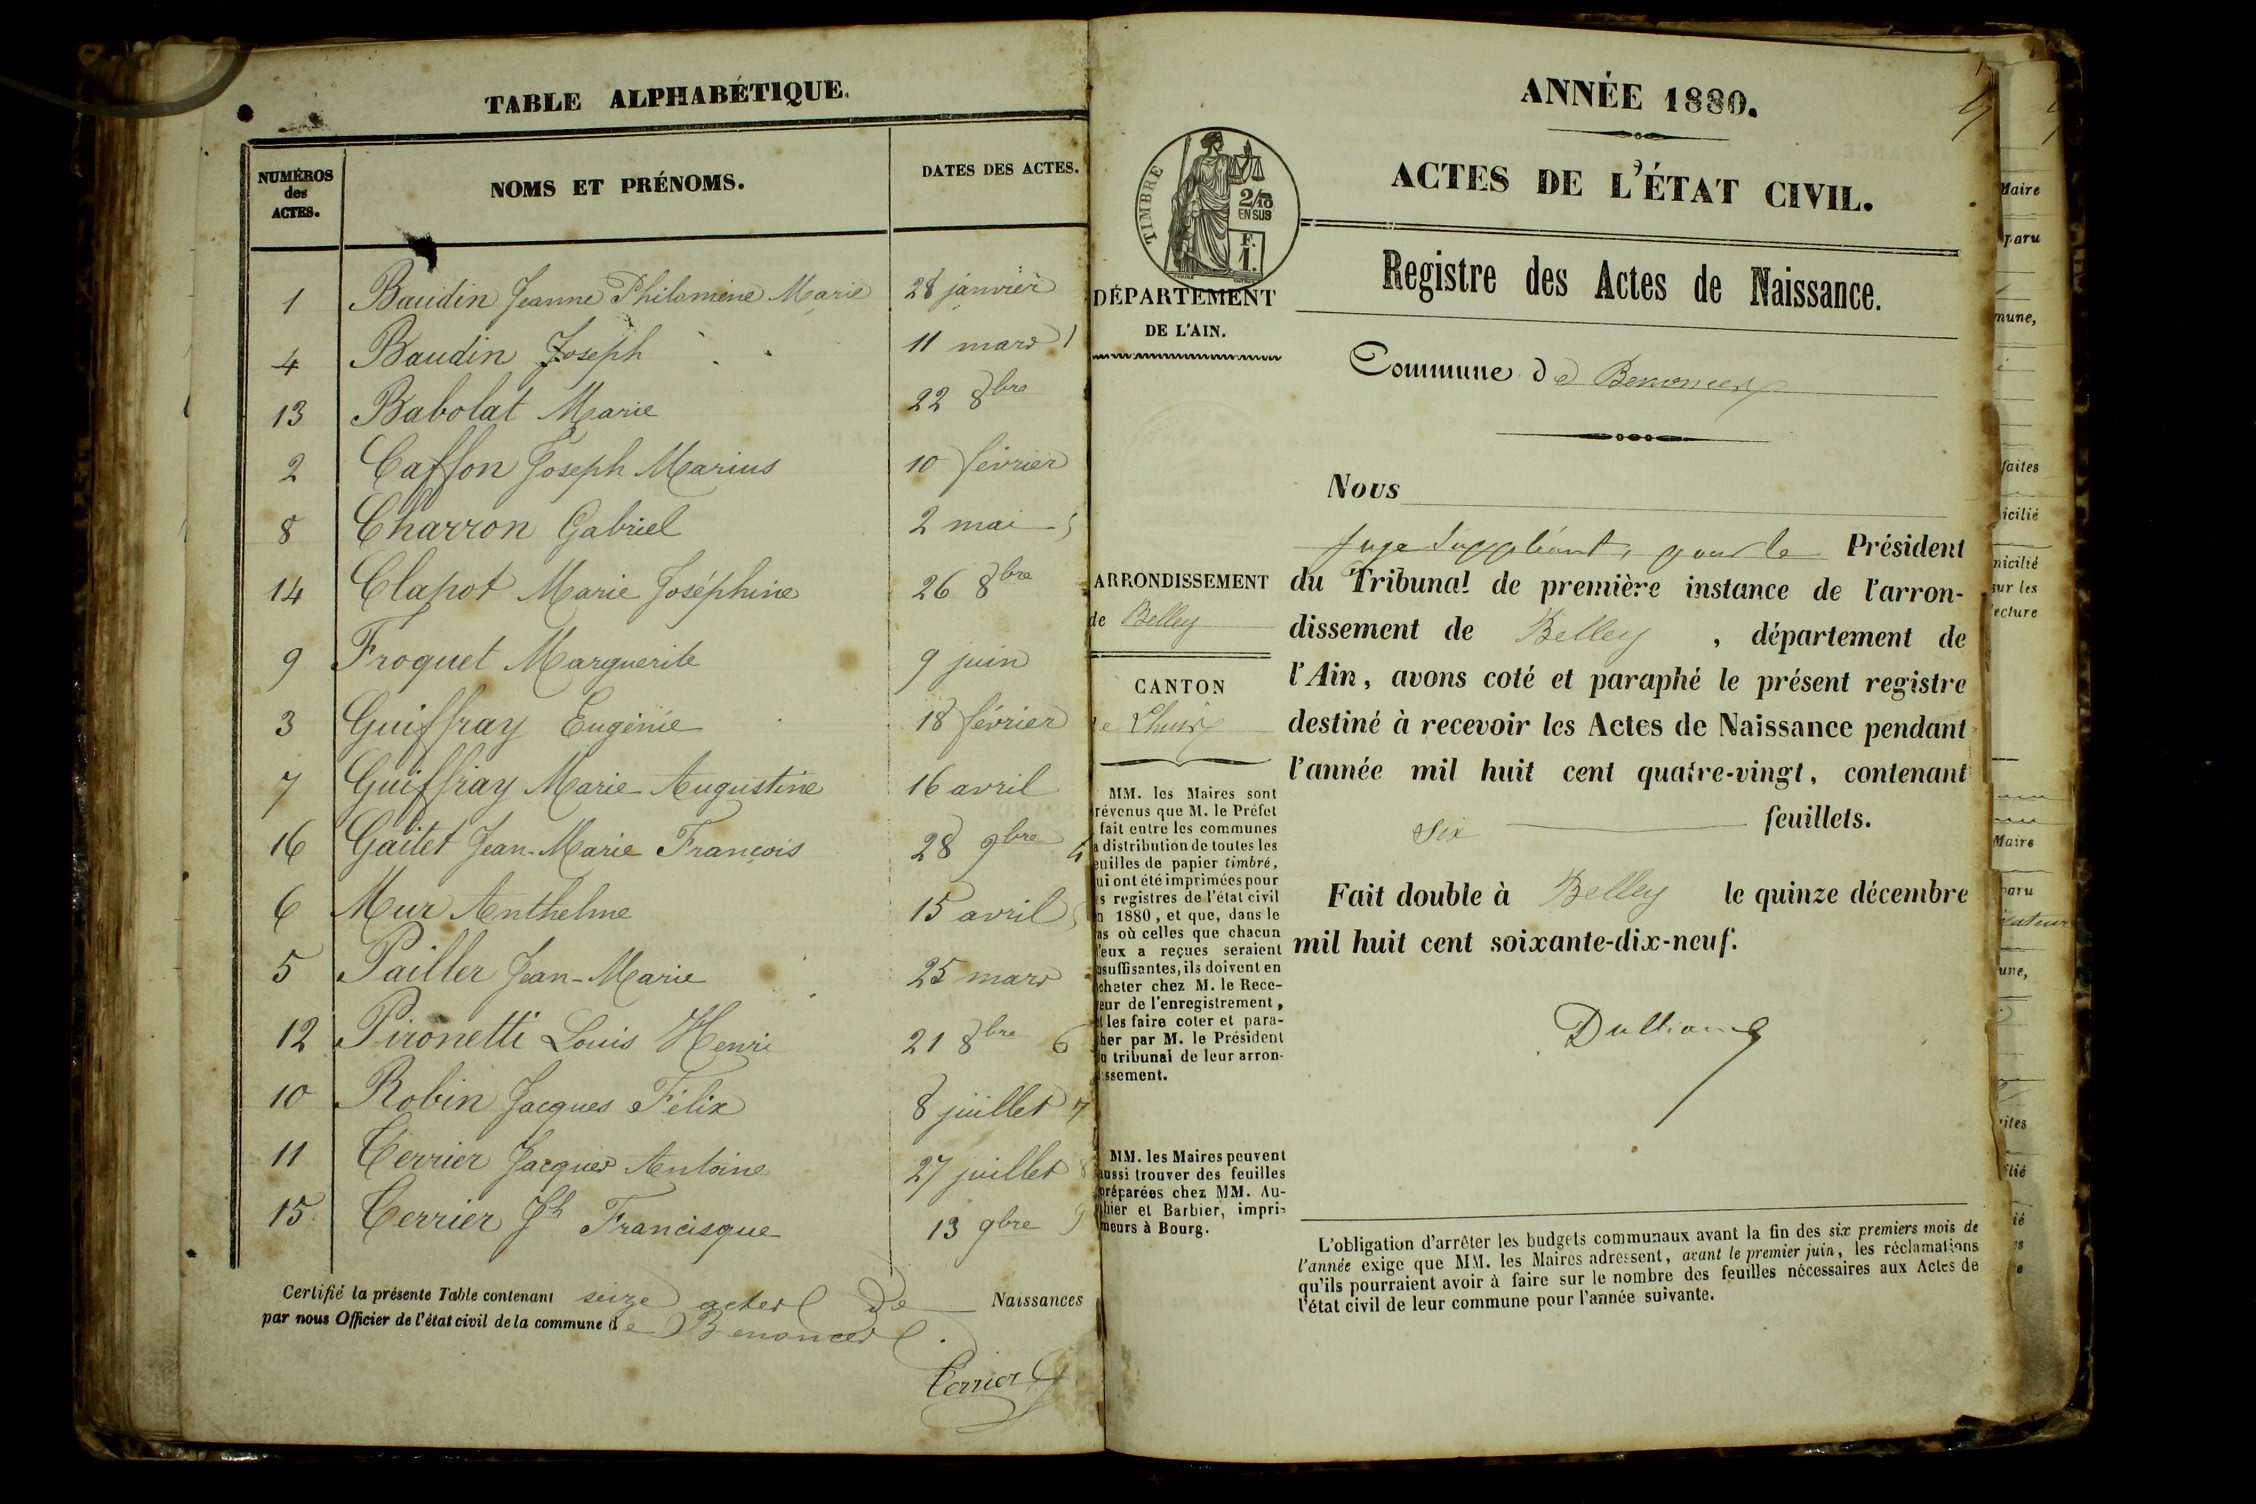 TABLE ALPHABÉTIQUE.
NUMÉROS des ACTES.
NOMS ET PRÉNOMS.
DATES DES ACTES.
1 Baudin Jeanne Philomène Marie 28 janvier
4 Baudin Joseph 11 mars
13 Babolat Marie 22 8bre
2 Caffon Joseph Marius 10 février
8 Charron Gabriel 2 mai
14 Clapot Marie Joséphine 26 8bre
9 Froquet Marguerite 9 juin
3 Guiffray Eugénie 18 février
7 Guiffray Marie Augustine 16 avril
16 Gaitet Jean-Marie François 28 9bre
6 Mur Anthelme 15 avril
5 Pailler Jean-Marie 25 mars
12 Pironetti Louis Henri 21 8bre 6
10 Robin Jacques Félix 8 juillet 7
11 Terrier Jacques Antoine 27 juillet 8
15 Terrier Jh Francisque 13 9bre 9
Certifié la présente Table contenant seize actes de Naissances
par nous Officier de l'état civil de la commune de Benonces.
Terrier
ANNÉE 1880.
ACTES DE L'ÉTAT CIVIL.
TIMBRE
2/10 EN SUS
F. 1.
DÉPARTEMENT
DE L'AIN.
Registre des Actes de Naissance.
Commune de Benonces
Nous
Juge Suppléant, pour le Président
du Tribunal de première instance de l'arron-
dissement de Belley, département de
l'Ain, avons coté et paraphé le présent registre
destiné à recevoir les Actes de Naissance pendant
l'année mil huit cent quatre-vingt, contenant
six feuillets.
Fait double à Belley le quinze décembre
mil huit cent soixante-dix-neuf.
ARRONDISSEMENT
de Belley
CANTON
de Lhuis
MM. les Maires sont
révenus que M. le Préfet
fait entre les communes
a distribution de toutes les
euilles de papier timbré,
ui ont été imprimées pour
s registres de l'état civil
n 1880, et que, dans le
as où celles que chacun
'eux a reçues seraient
nsuffisantes, ils doivent en
cheter chez M. le Rece-
eur de l'enregistrement,
t les faire coter et para-
her par M. le Président
u tribunal de leur arron-
issement.
MM. les Maires peuvent
aussi trouver des feuilles
préparées chez MM. Au-
thier et Barbier, impri-
meurs à Bourg.
L'obligation d'arrêter les budgets communaux avant la fin des six premiers mois de
l'année exige que MM. les Maires adressent, avant le premier juin, les réclamations
qu'ils pourraient avoir à faire sur le nombre des feuilles nécessaires aux Actes de
l'état civil de leur commune pour l'année suivante.
Maire
paru
mune,
faites
icilié
micilié
sur les
ecture
Maire
paru
une,
ites